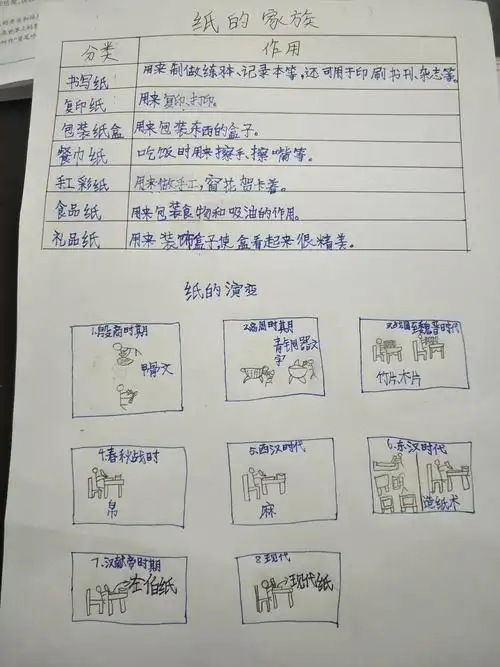 纸的家族
分类 作用
书写纸 用来制做练习本、记录本等,还可用于印刷书刊、杂志等。
复印纸 用来复印、打印。
包装纸盒 用来包装东西的盒子。
餐巾纸 吃饭时用来擦手、擦嘴等。
手工彩纸 用来做手工,窗花贺卡等。
食品纸 用来包装食物和吸油的作用。
礼品纸 用来装饰盒子使盒看起来很精美。
纸的演变
1.殷商时期
甲骨文
2.商周时期
青铜器文
字
3.战国至魏晋时代
竹片、木片
4.春秋战时
帛
5.西汉时代
麻
6.东汉时代
造纸术
7.汉献帝时期
左伯纸
8.现代
现代纸